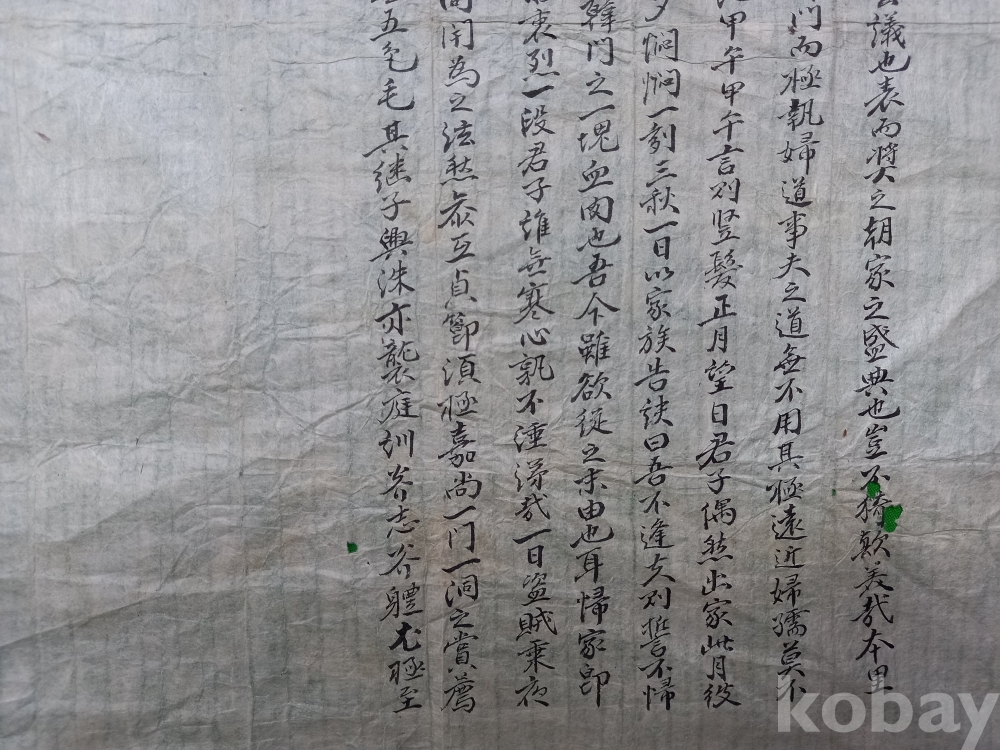 議也表而奬之朝家之盛典也豈不猗歟美哉本里
門而極執婦道事夫之道無不用其極遠近婦孺莫不
甲午甲午言則竖髮正月望日君子偶然出家此月後
夕悶悶一刻三秋一日以家族告訣曰吾不逢夫則誓不帰
韓門之一塊血肉也吾今雖欲従之末由也耳帰家即
衷烈一段君子雄無寒心孰不涕哉一日盗賊乗夜
聞为之泫然泰互貞節須極嘉尚一門一洞之賞薦
五色毛其继子興洙亦襲庭訓养志养軆尤極至
kobay